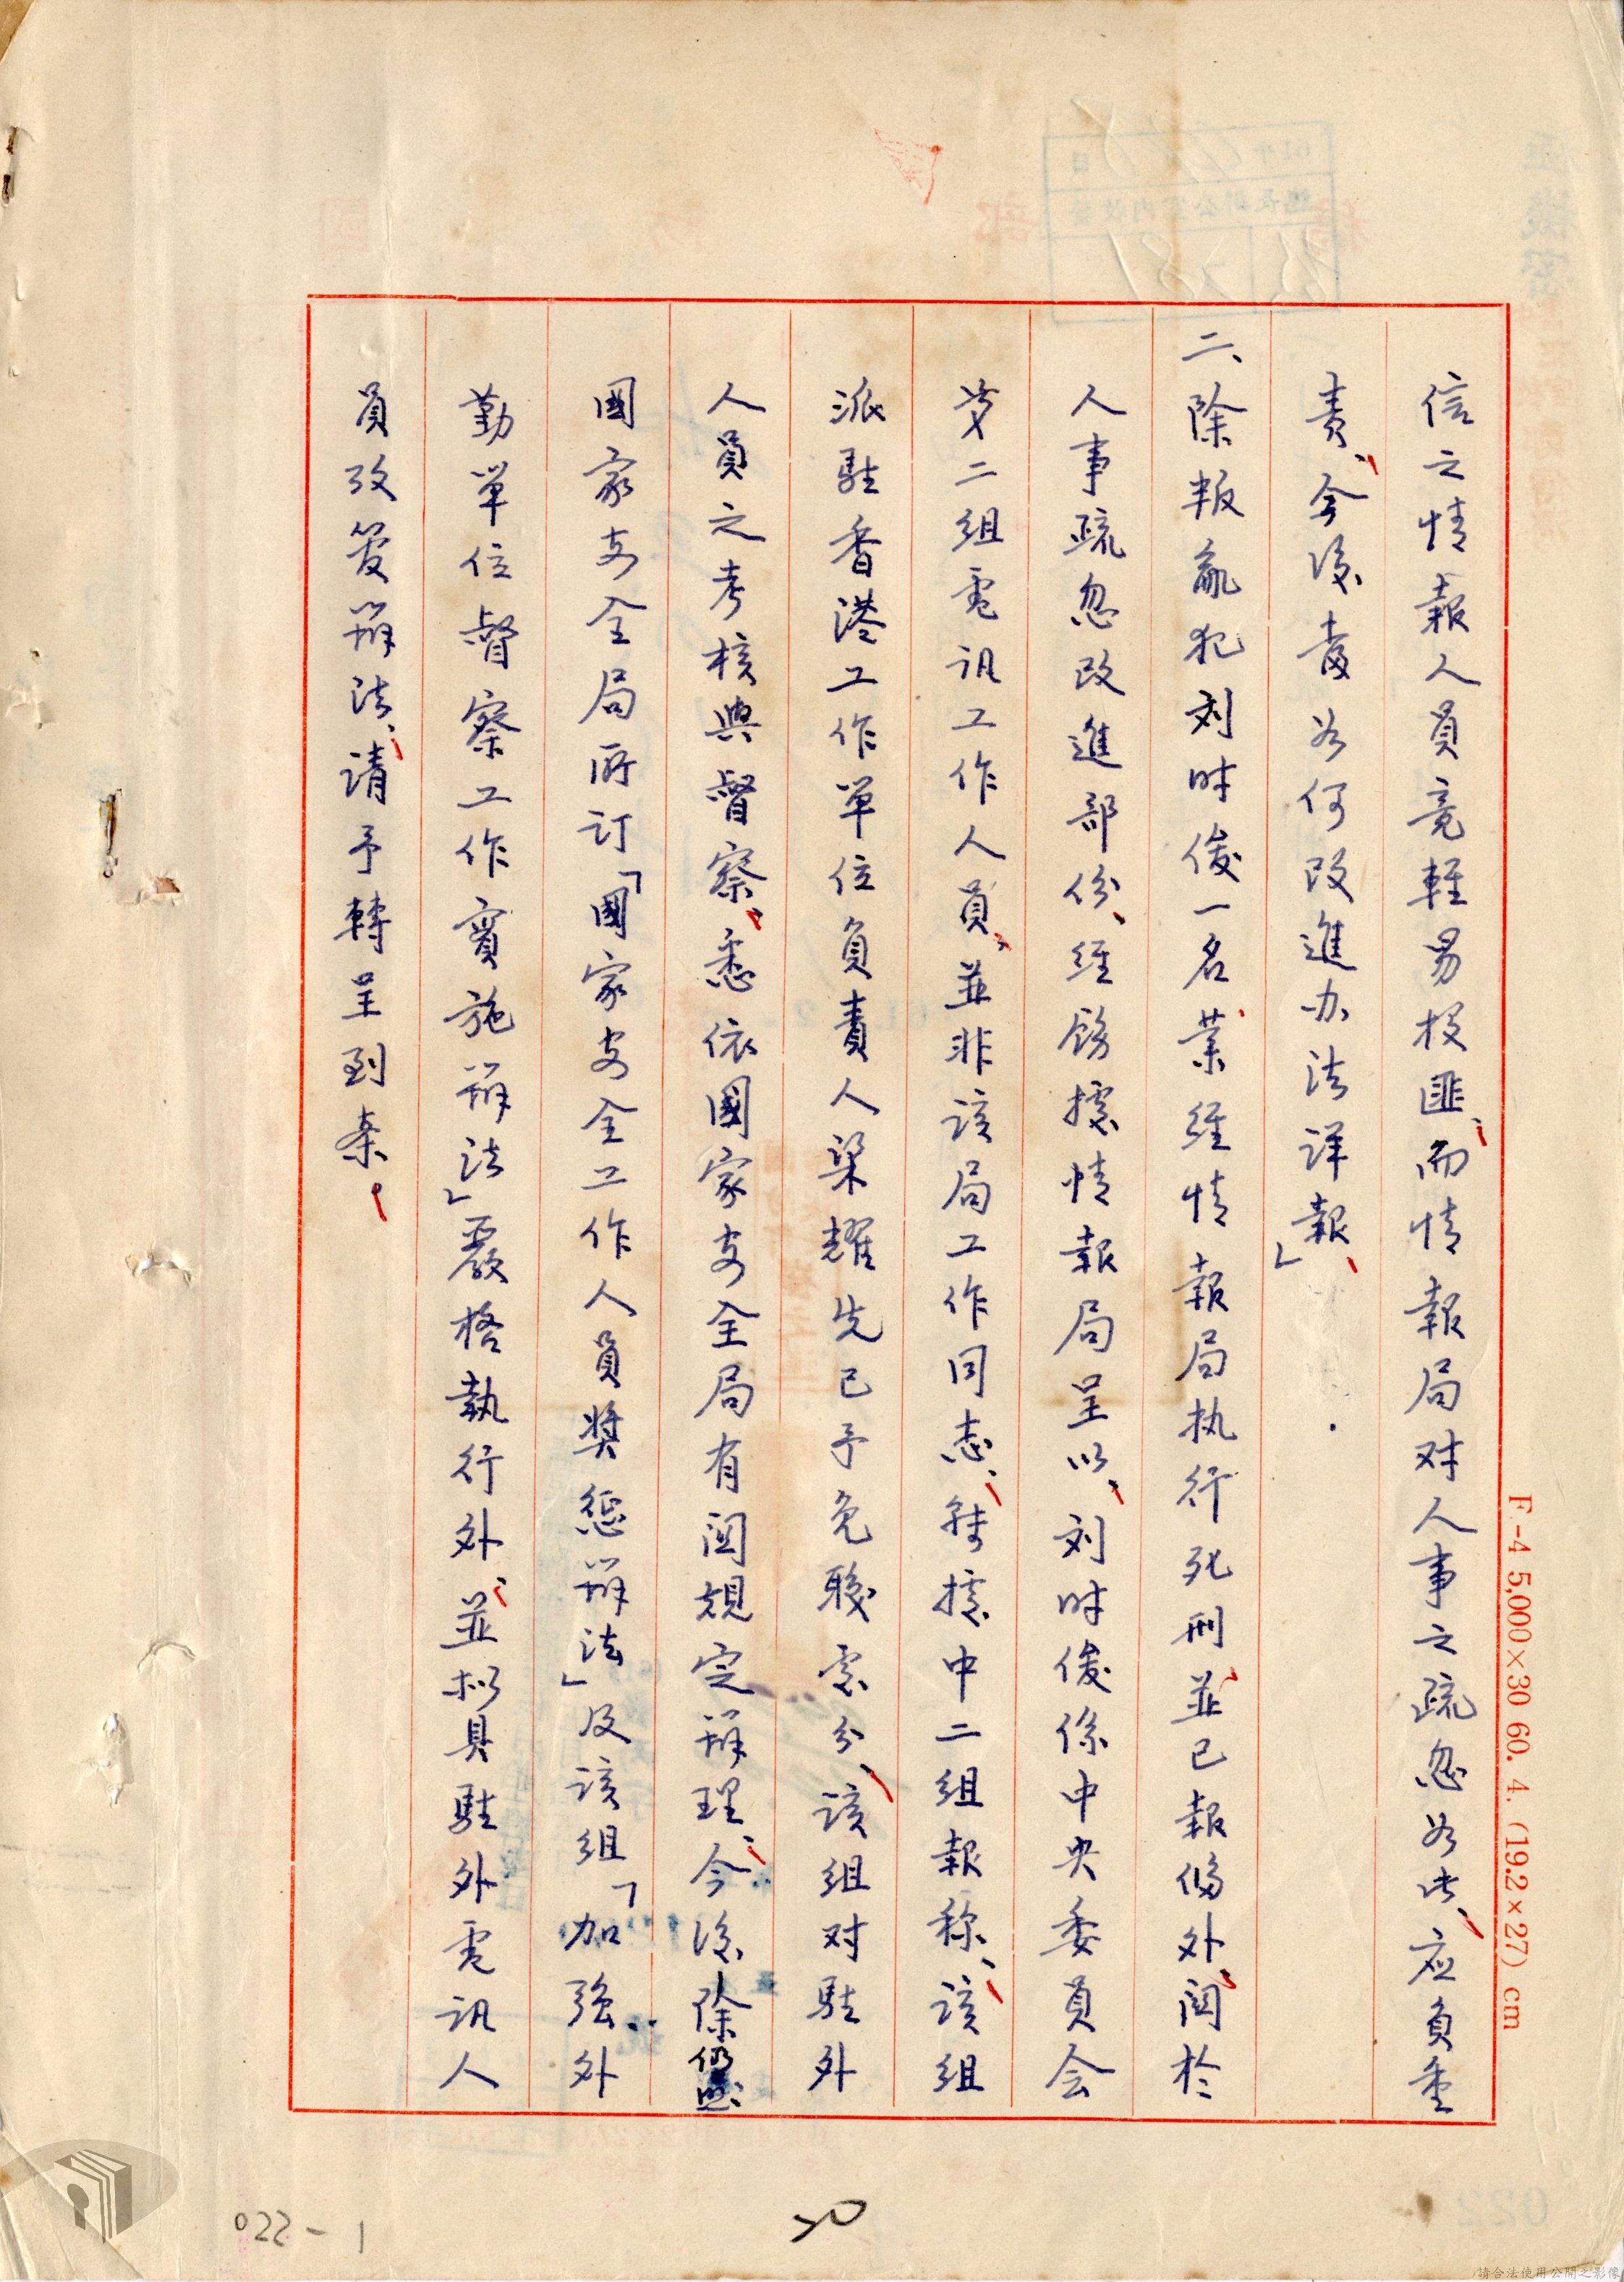 信之情報人員竟輕易投匪、而情報局对人事之疏忽如此、应負重
責、今後當如何改進办法详報」、
二、除叛亂犯刘时俊一名、業經情報局执行死刑、並已報俻外、関於
人事疏忽改進部份、經飭據情報局呈以、刘时俊係中央委員会
第二組電讯工作人員、並非该局工作同志、轉據中二組報称、该組
派駐香港工作單位負責人梁耀先已予免職處分、该組对駐外
人員之考核與督察、悉依國家安全局有関規定辦理、今後除仍照
國家安全局所订「國家安全工作人員奬懲辦法」及该組「加強外
勤單位督察工作實施辦法」嚴格執行外、並拟具駐外電讯人
員攷管辦法、請予轉呈到案。
F-4 5,000×30 60. 4. (19.2×27) cm
022-1
20
請合法使用公開之影像